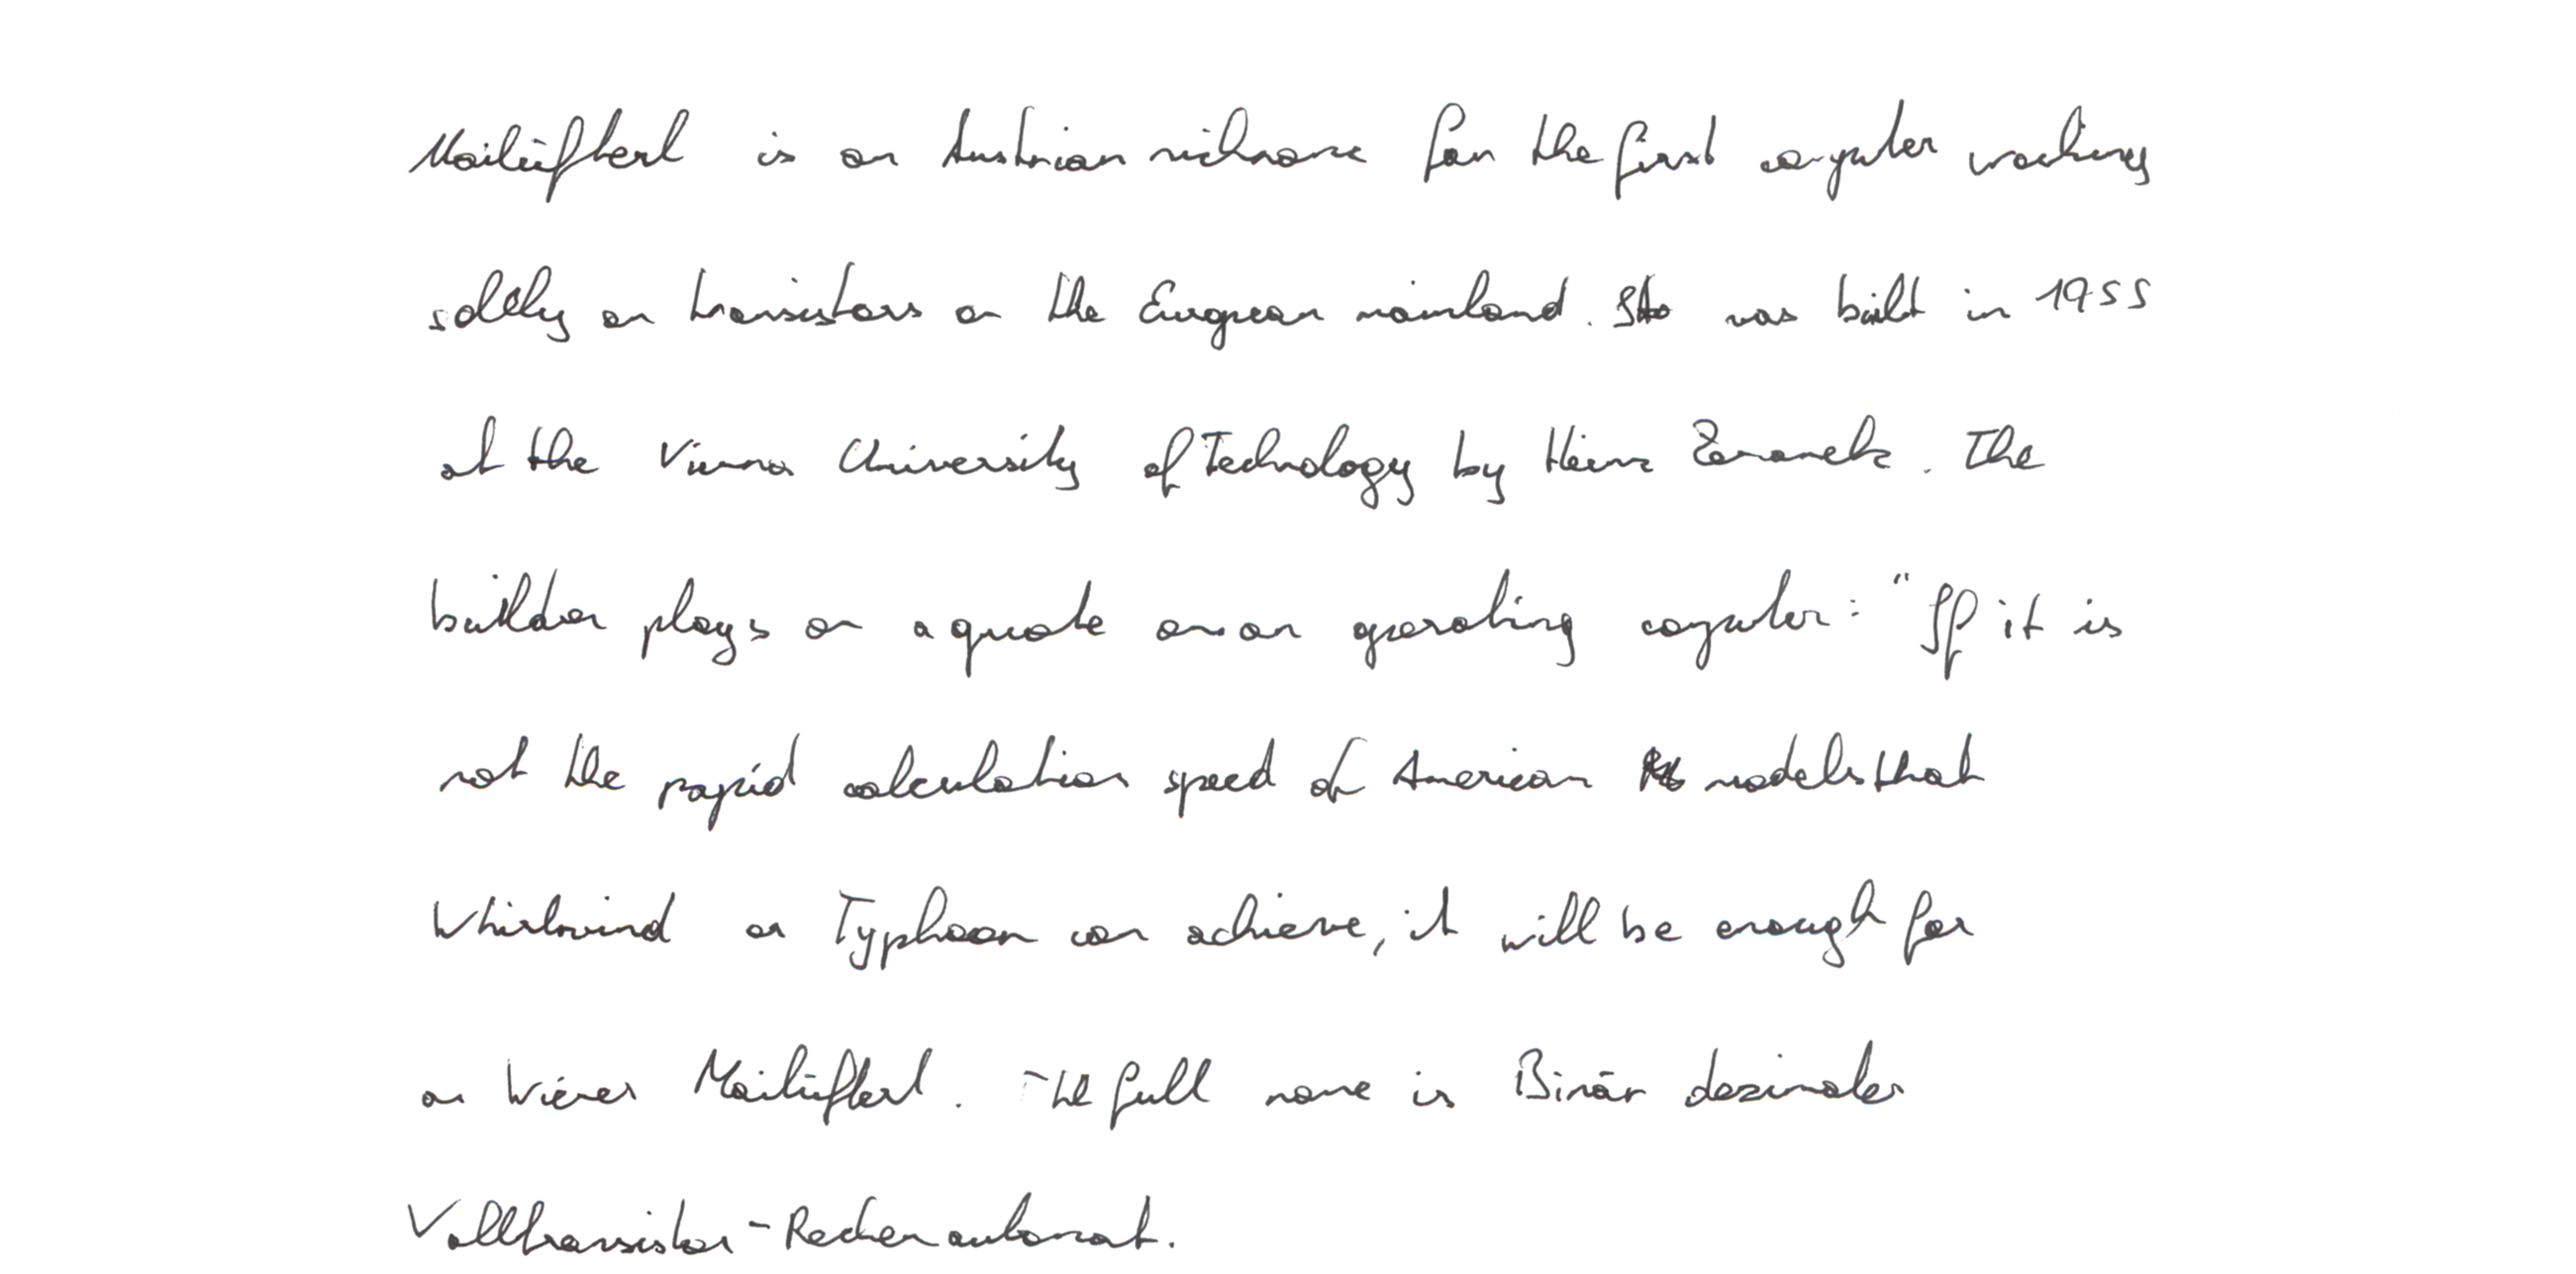 Mailüfterl is an Austrian nickname for the first computer working
solely on transistors on the European mainland. It was built in 1955
at the Vienna University of Technology by Heinz Zemanek. The
builder plays on a quote on an operating computer: "If it is
not the rapid calculation speed of American models that
Whirlwind or Typhoon can achieve, it will be enough for
an Wiener Mailüfterl. The full name is Binär dezimaler
Volltransistor-Rechenautomat.